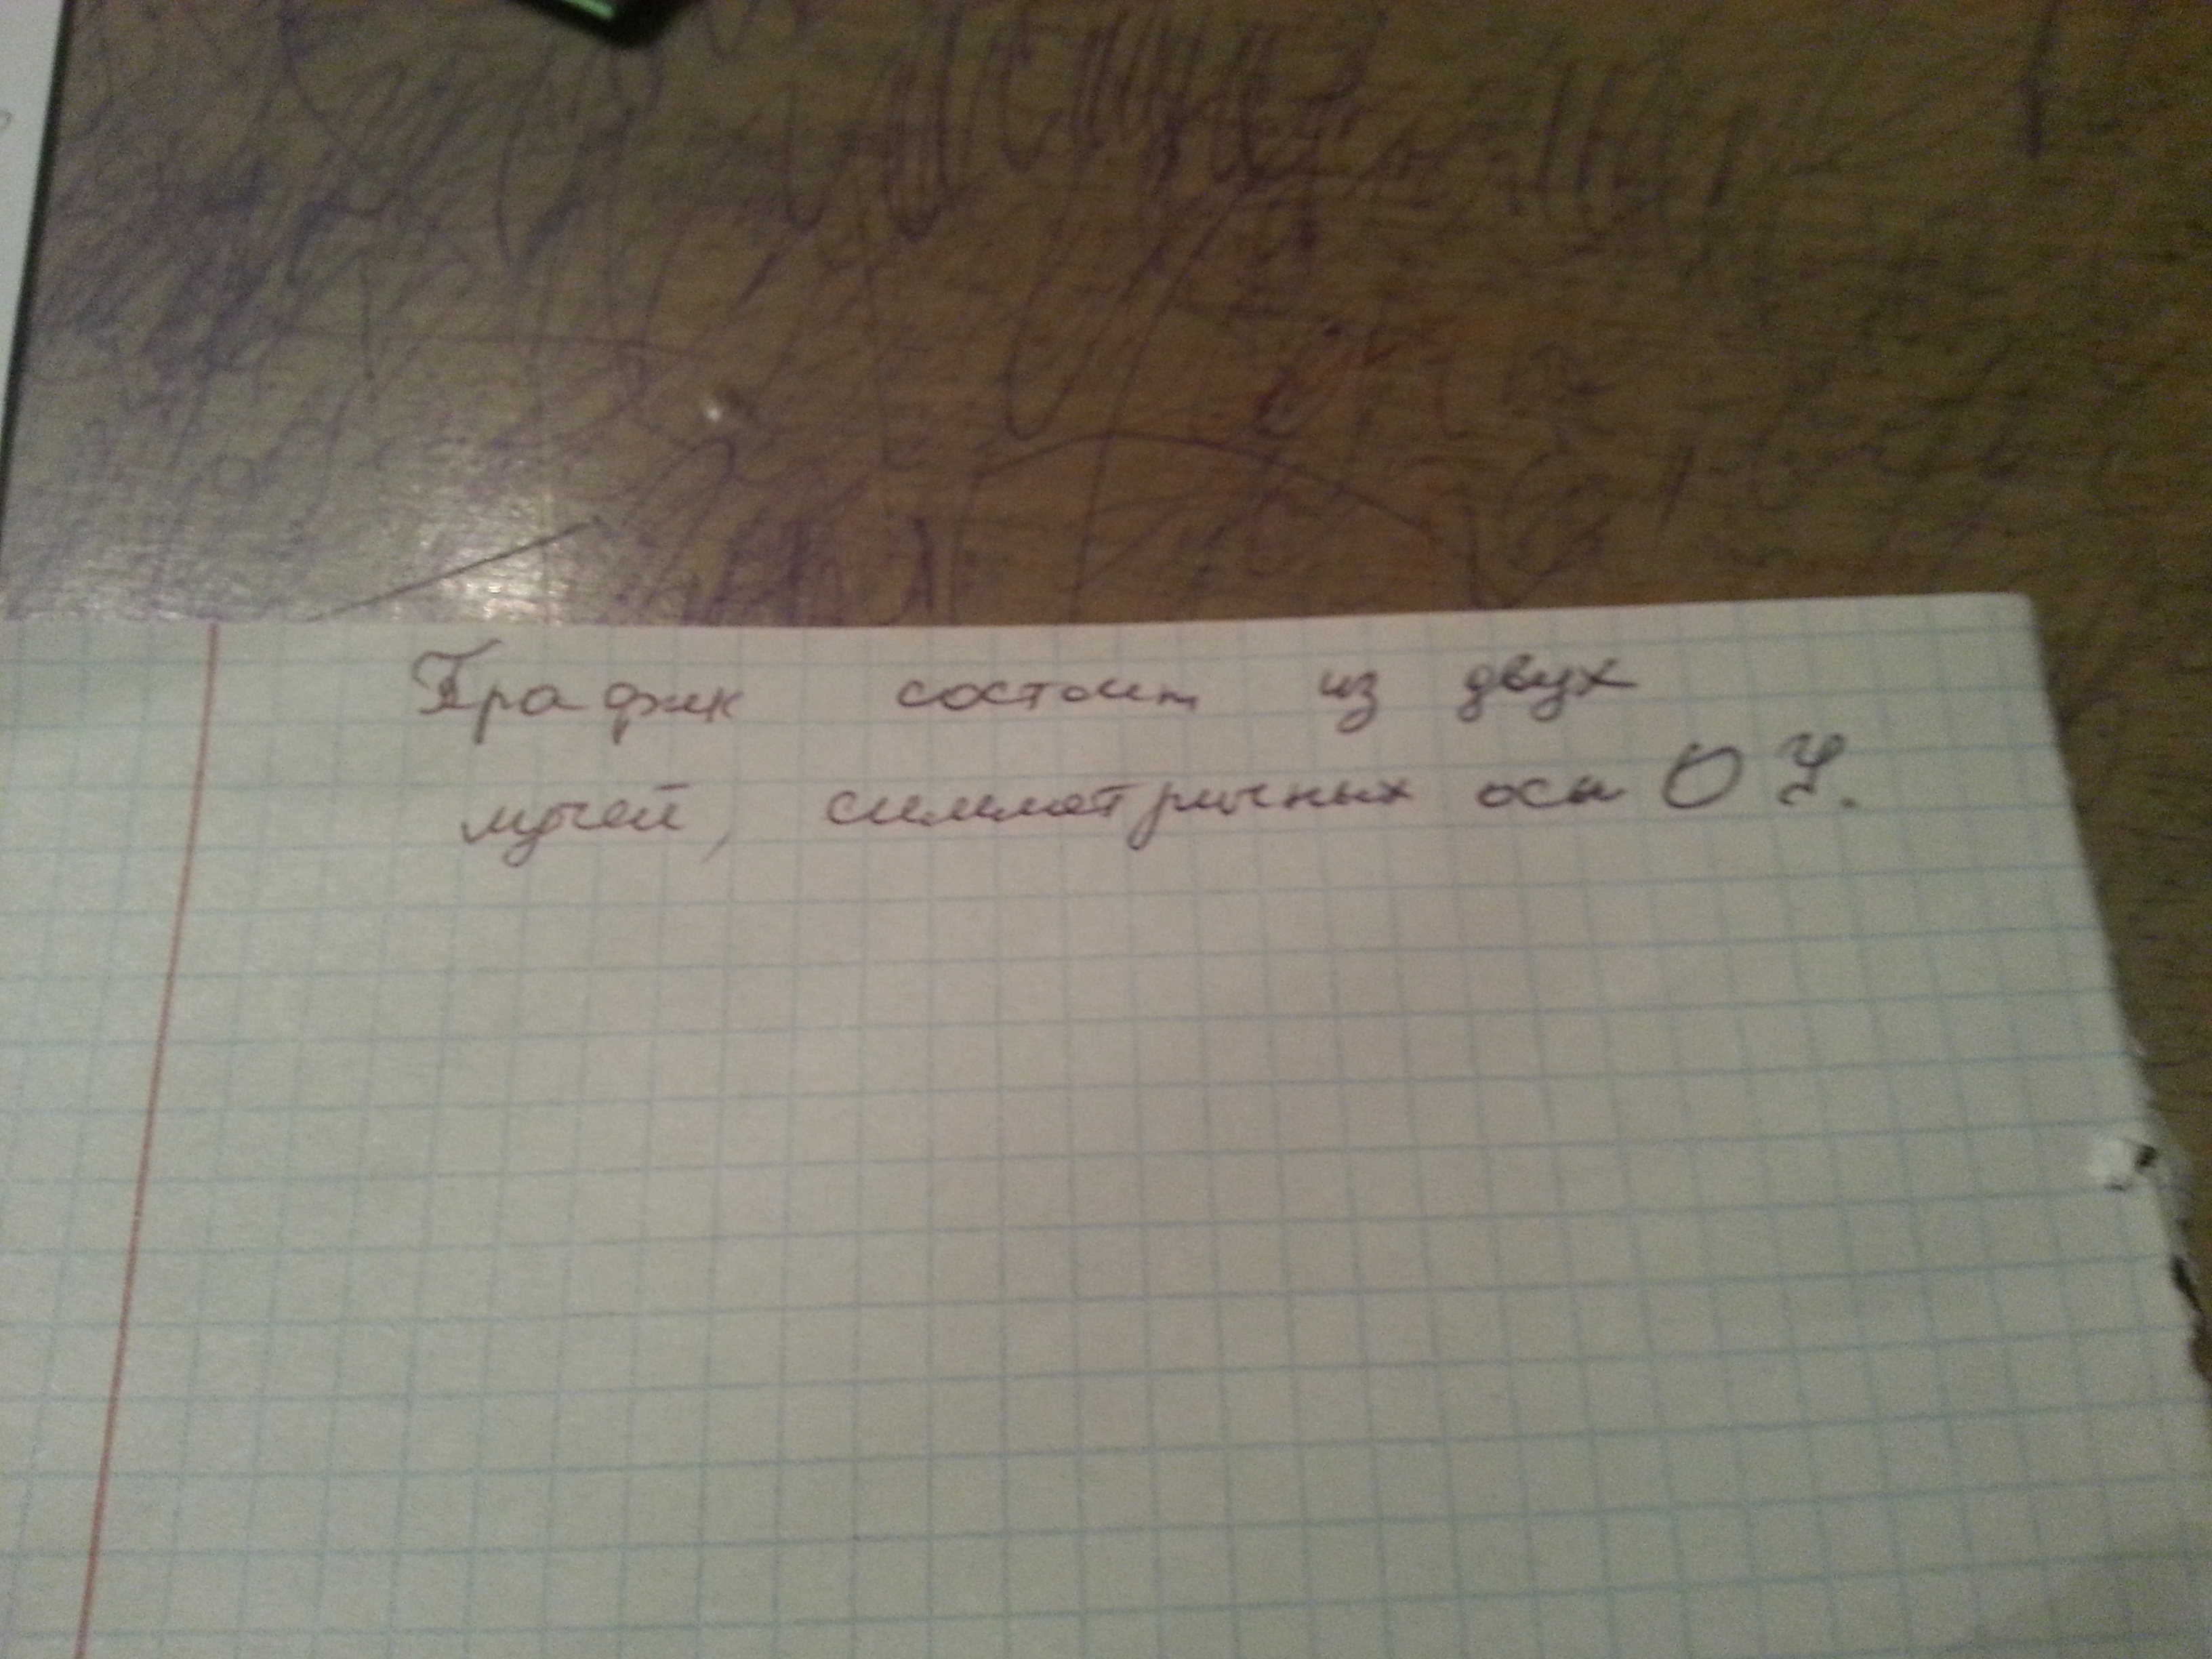 График состоит из двух
лучей, симметричных оси ОУ.